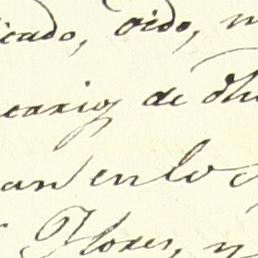 icado, oido, n
carios de dh
an en lo
Flores, y